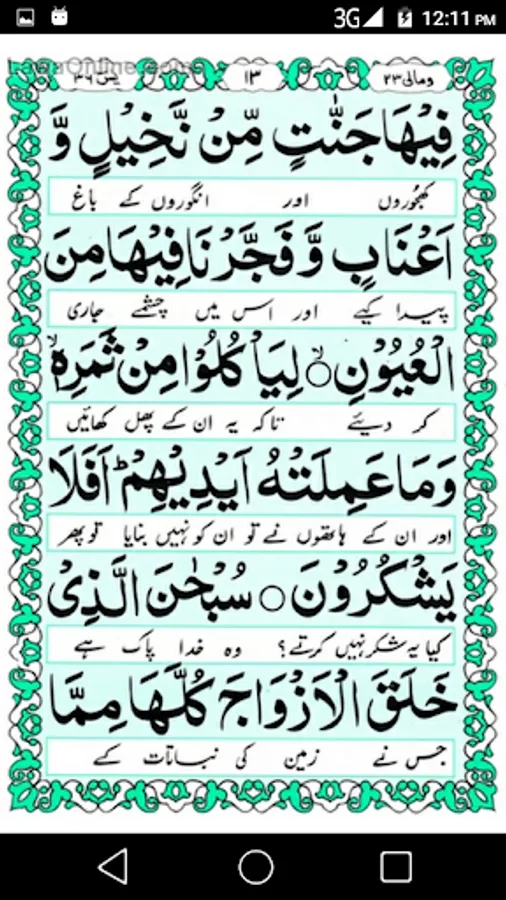 3G 12:11 PM
ومالی ۲۳ ۱۳ یٰسٓ ۳۶
فِيْهَا جَنّٰتٍ مِّنْ نَّخِيْلٍ وَّ
کھجوروں اور انگوروں کے باغ
اَعْنَابٍ وَّ فَجَّرْنَا فِيْهَا مِنَ
پیدا کیے اور اس میں چشمے جاری
الْعُيُوْنِ ۙ لِيَاْكُلُوْا مِنْ ثَمَرِهٖ ۙ
کر دیئے تاکہ یہ ان کے پھل کھائیں
وَمَا عَمِلَتْهُ اَيْدِيْهِمْ ؕ اَفَلَا
اور ان کے ہاتھوں نے تو ان کو نہیں بنایا تو پھر
يَشْكُرُوْنَ ۝ سُبْحٰنَ الَّذِيْ
کیا یہ شکر نہیں کرتے؟ وہ خدا پاک ہے
خَلَقَ الْاَزْوَاجَ كُلَّهَا مِمَّا
جس نے زمین کی نباتات کے